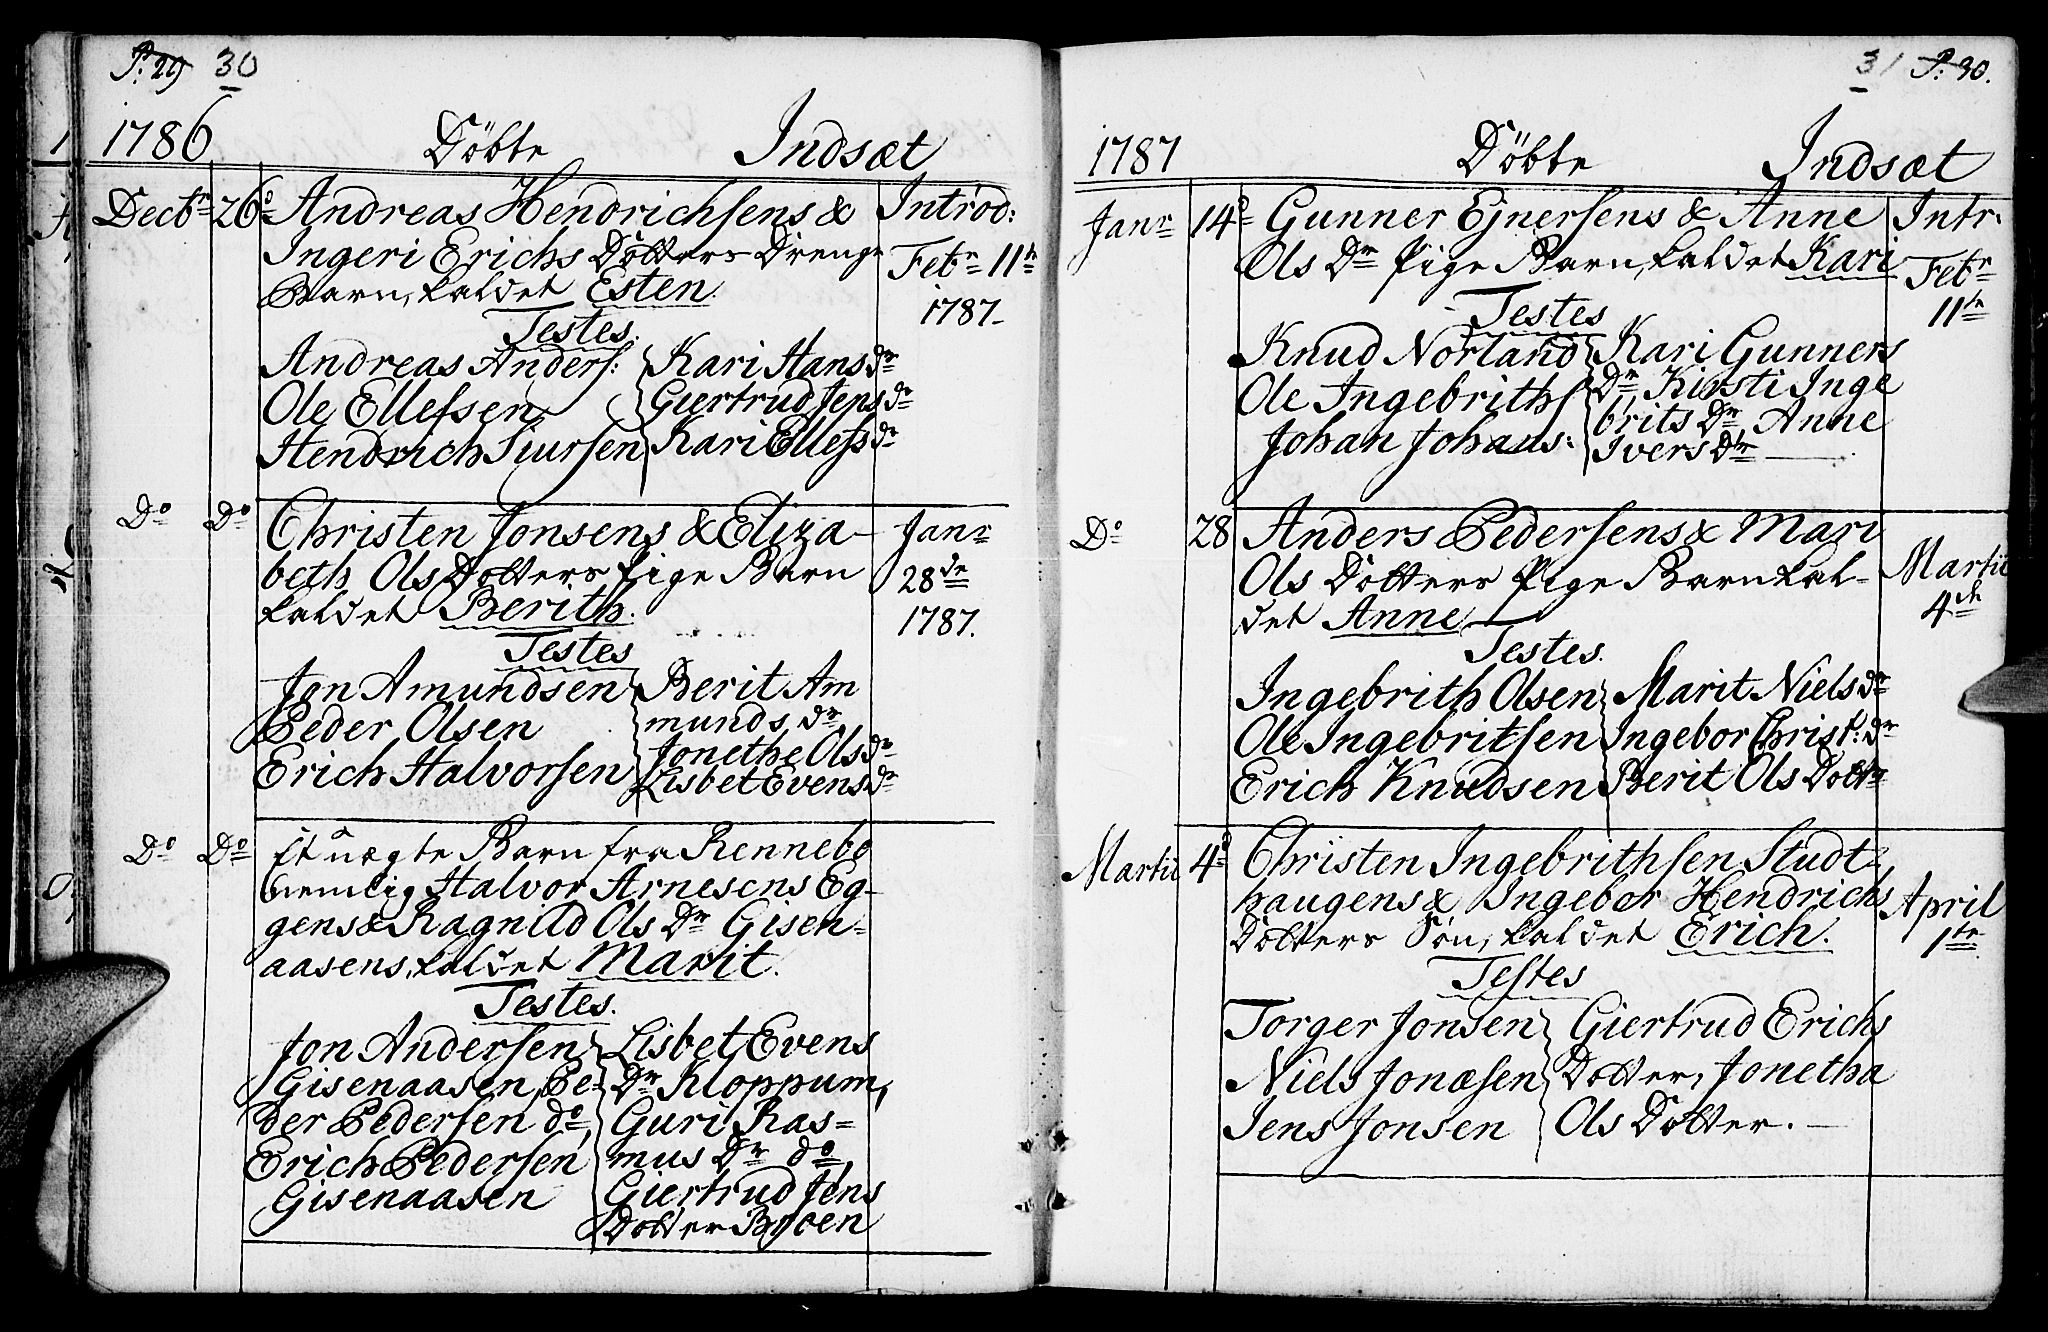 P: 29 30
1786 Döbte Indsæt
Decbr 26d Andreas Hendrichsens & Introd:
Ingeri Erichs Dotters Drenge Febr 11te
Barn, kaldet Esten. 1787.
Testes.
Andreas Anders: Kari Hans dr
Ole Ellefsen Giertrud Jens dr
Hendrich Siursen Kari Ellefs dr
Do Do Christen Jonsens & Eliza- Janr
beth Ols Dotters Pige Barn 28de
kaldet Berith. 1787.
Testes
Jon Amundsen Berit Am
Peder Olsen munds dr
Erich Halvorsen Jonethe Ols dr
Lisbet Evens dr
Do Do Et uægte Barn fra Rennebo
nemlig Halvor Arnesens Eg-
gens & Ragnild Ols Dr Gisen-
aasens, kaldet Marit.
Testes.
Jon Andersen Lisbet Evens
Gisenaasen, Pe- Dr Kloppum,
der Pedersen do, Guri Ras-
Erich Pedersen mus Dr do,
Gisenaasen Giertrud Jens
Dotter Bjoen
31 P: 30.
1787 Döbte Indsæt
Janr 14d Gunner Ejnersens & Anne Intr:
Ols Dr Pige Barn, kaldet Kari Febr
Testes 11te
Knud Norland Kari Gunners
Ole Ingebriths Dr, Kirsti Inge
Johan Johans: brits Dr, Anne
Ivers Dr
Do 28 Anders Pedersens & Mari
Ols Dotters Pige Barn kal- Martii
det Anne 4de
Testes.
Ingebrith Olsen Marit Niels dr
Ole Ingebritsen Ingebor Christ: dr
Erich Knudsen Berit Ols Dottr
Martii 4d Christen Ingebrithsen Studt-
haugens & Ingebor Hendrichs April
Dotters Søn, kaldet Erich. 1te
Testes
Torger Jonsen Giertrud Erichs
Niels Jonæsen Dotter, Jonetha
Jens Jonsen Ols Dotter.